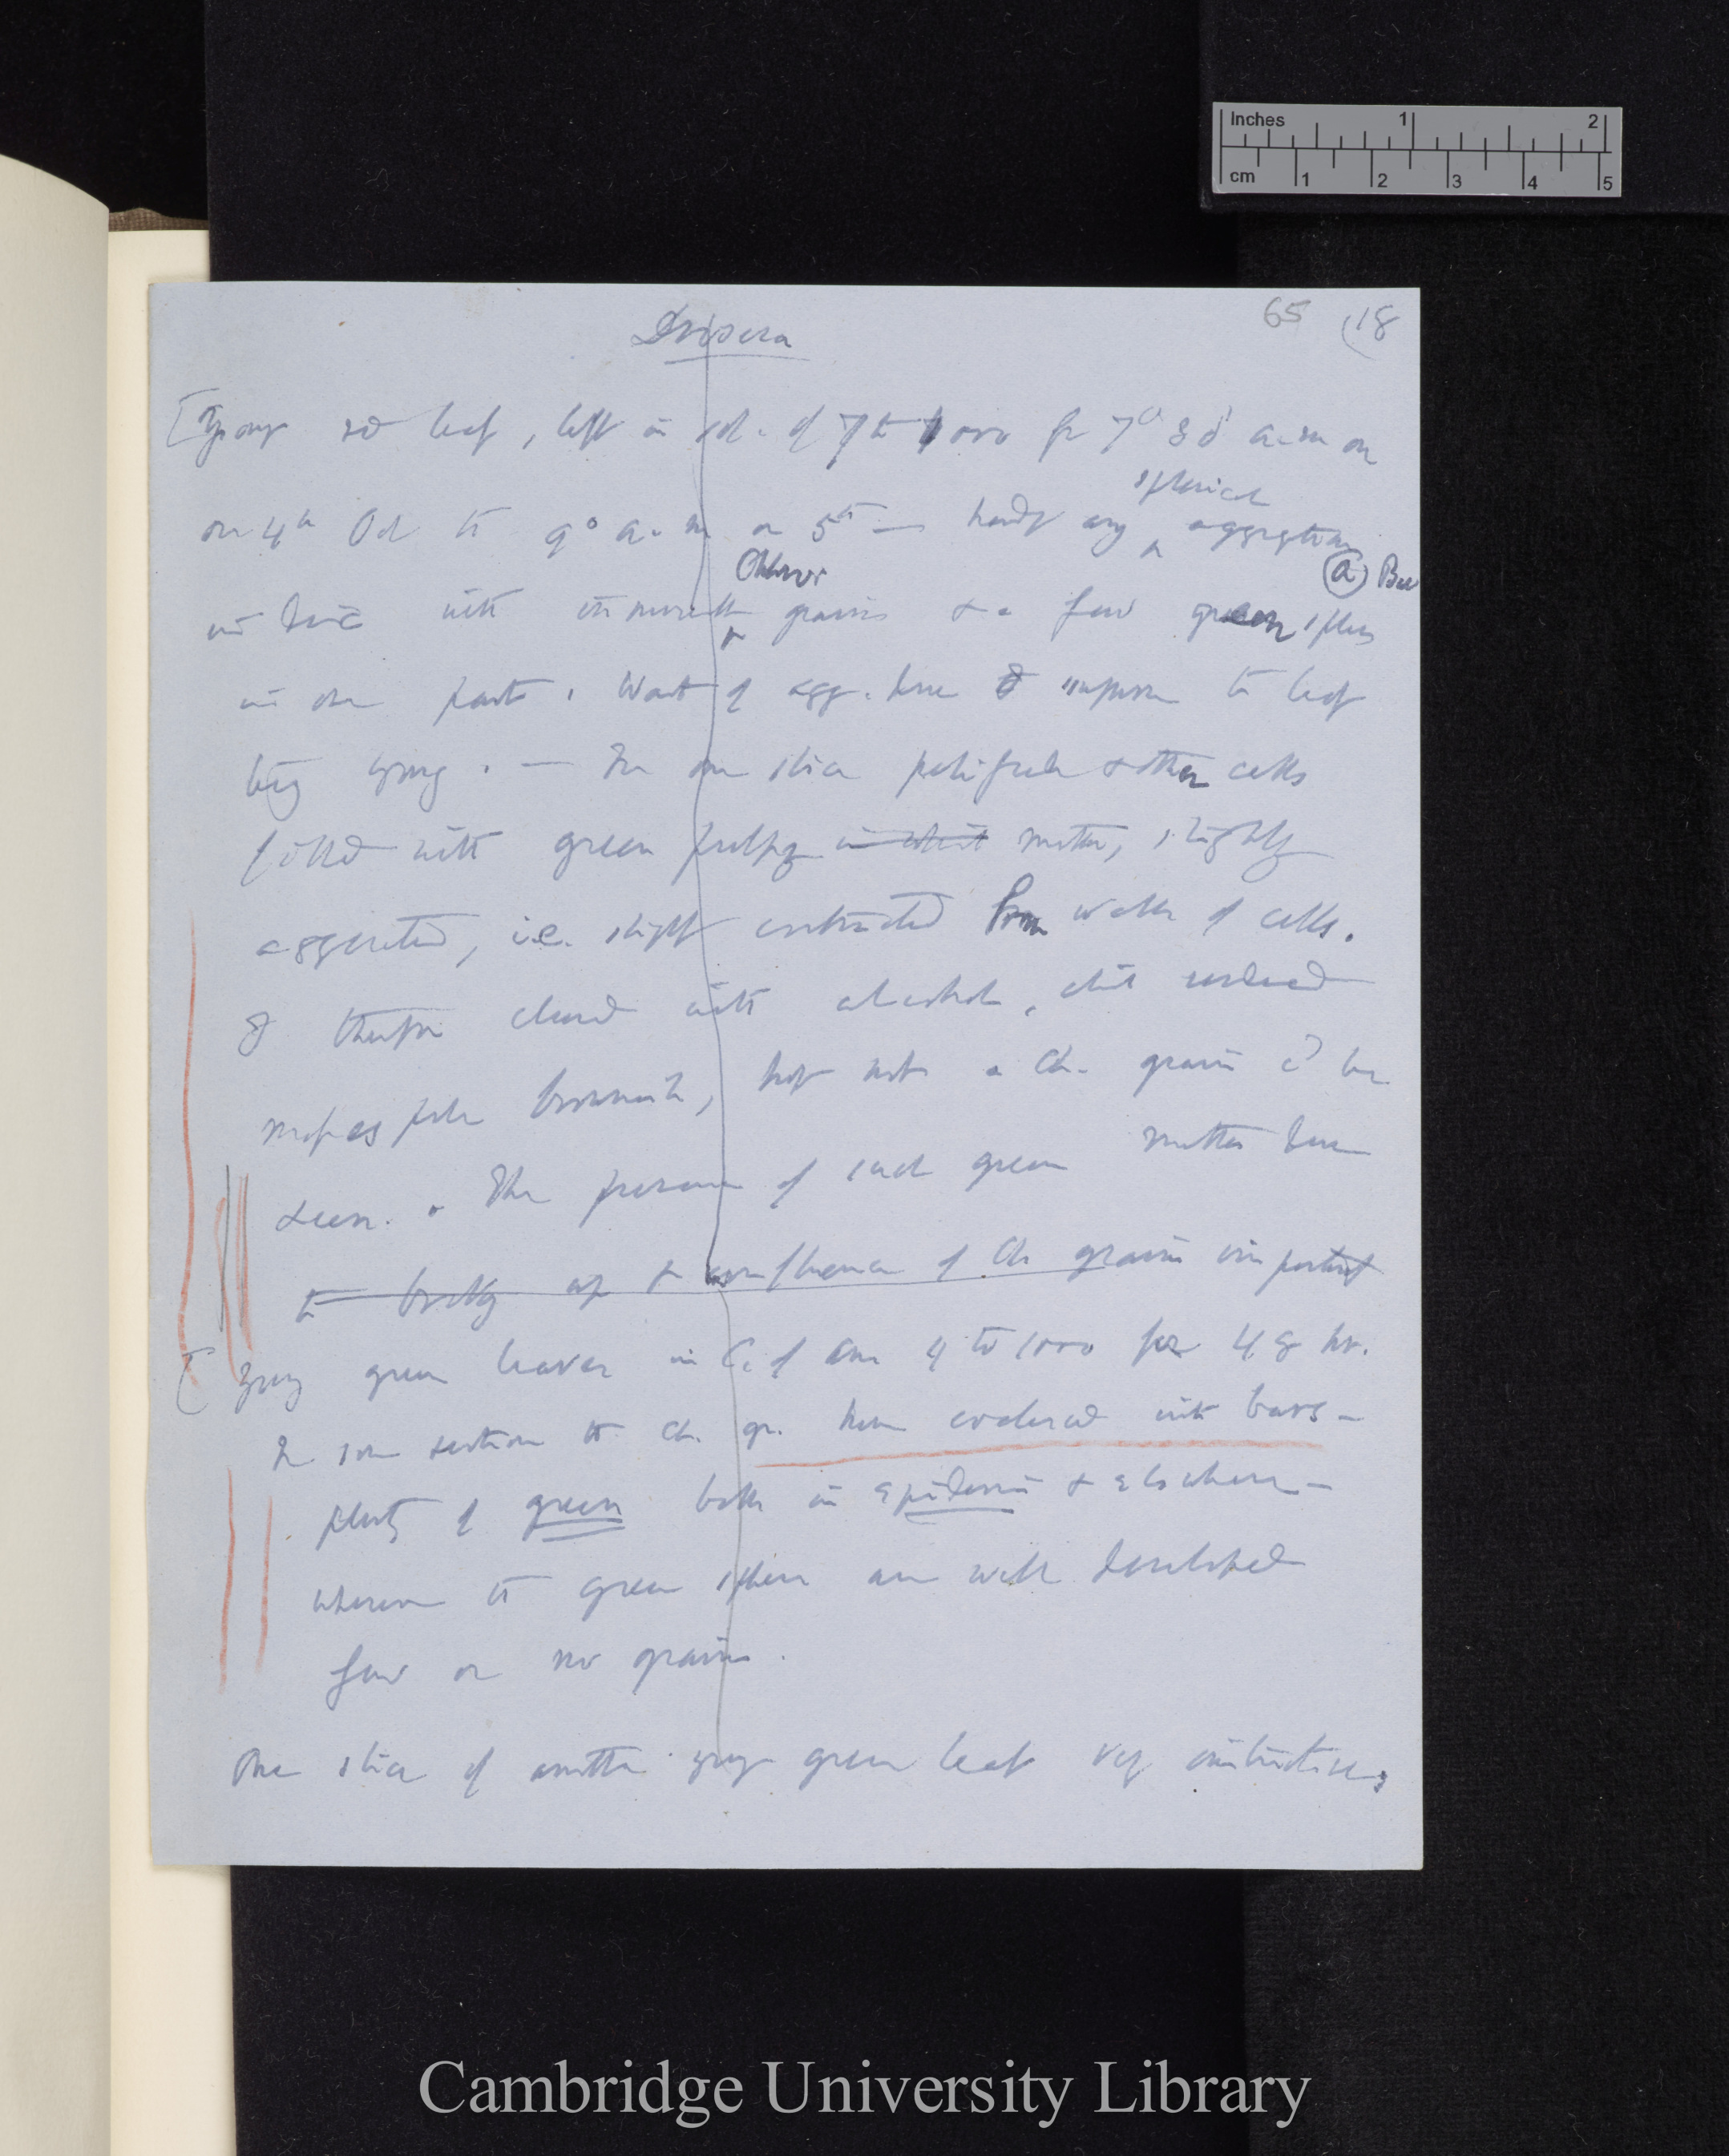 Inches 1 2
cm 1 2 3 4 5
65 (18
Drosera
[Young red leaf, left in sol. of 7 to 1000 for 7° 30' a.m on
on 4th Oct to 9° a.m on 5th — hardly any spherical aggregation
Chloro (a) But
with grains & a few green spheres
in one part. Want of agg. here I suppose to leaf
being young. — In one slice & other cells
filled with green pulpy matter, slightly
aggregated, i.e. slightly contracted from walls of cells.
I therefore cleared with alcohol, which rendered
pale brownish, but not a Ch. grain cd be
seen. The presence of such green matter here
to breaking up & confluence of Ch grains important
[Young green leaves in C. of Am 4 to 1000 for 48 hr.
In some sections the Ch. gr. have coalesced into bars —
plenty of green both in epidermis & elsewhere —
wherever the green spheres are well developed
few or no grains.
One slice of another young green leaf very instructive,
Cambridge University Library